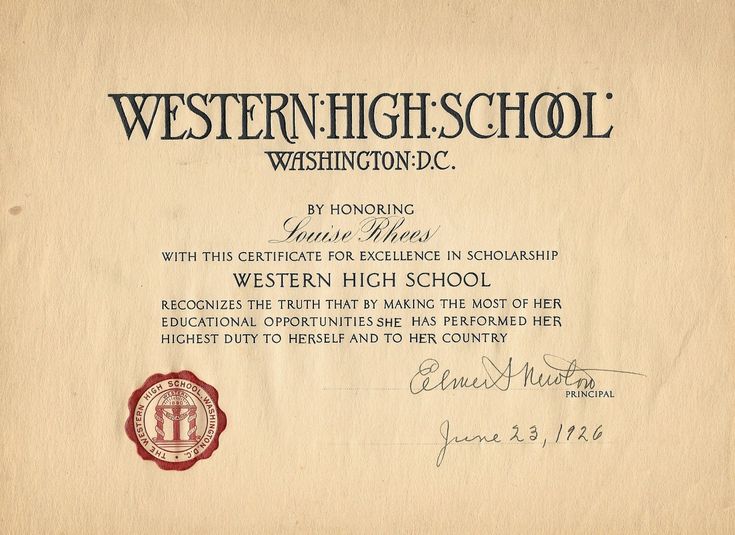 WESTERN:HIGH:SCHOOL
WASHINGTON:D.C.
BY HONORING
Louise Rhees
WITH THIS CERTIFICATE FOR EXCELLENCE IN SCHOLARSHIP
WESTERN HIGH SCHOOL
RECOGNIZES THE TRUTH THAT BY MAKING THE MOST OF HER
EDUCATIONAL OPPORTUNITIES SHE HAS PERFORMED HER
HIGHEST DUTY TO HERSELF AND TO HER COUNTRY
Elmer S Newton
PRINCIPAL
June 23, 1926
THE WESTERN HIGH SCHOOL, WASHINGTON, D.C.
WESTERN
1890